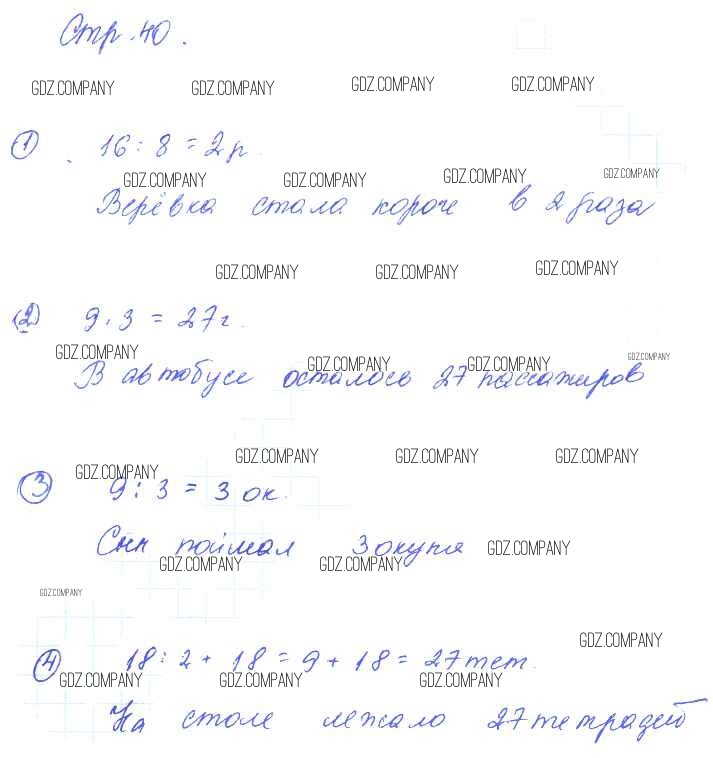 Стр. 40.
GDZ.COMPANY GDZ.COMPANY GDZ.COMPANY GDZ.COMPANY
1 16 : 8 = 2 р.
GDZ.COMPANY GDZ.COMPANY GDZ.COMPANY GDZ.COMPANY
Верёвка стала короче в 2 раза
GDZ.COMPANY GDZ.COMPANY GDZ.COMPANY
2 9 · 3 = 27
GDZ.COMPANY GDZ.COMPANY GDZ.COMPANY GDZ.COMPANY
В автобусе осталось 27 пассажиров
GDZ.COMPANY GDZ.COMPANY GDZ.COMPANY GDZ.COMPANY
3 9 : 3 = 3 ок.
Сын поймал 3 окуня GDZ.COMPANY
GDZ.COMPANY GDZ.COMPANY
GDZ.COMPANY
GDZ.COMPANY
4 18 : 2 + 18 = 9 + 18 = 27 тет.
GDZ.COMPANY GDZ.COMPANY GDZ.COMPANY
На столе лежало 27 тетрадей